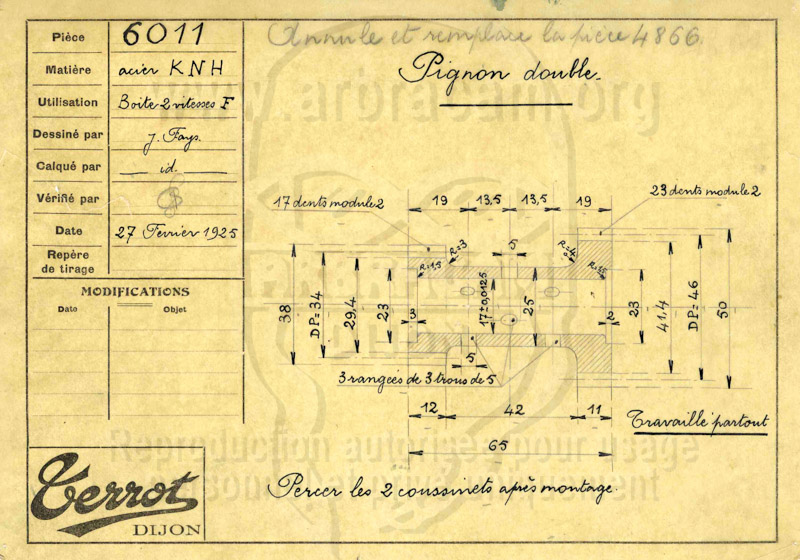 Annule et remplace la pièce 4866.
Pignon double.
Pièce 6011
Matière acier KNH
Utilisation Boite 2 vitesses F
Dessiné par J. Fays.
Calqué par id.
Vérifié par
Date 27 Fevrier 1925
Repère de tirage
MODIFICATIONS
Date Objet
17 dents module 2
23 dents module 2
19 13,5 13,5 19
R=1,5 R=3 5 R=4 R=1,5
38 DP=34 29,4 23 3 17±0,0125 25 2 23 41,4 DP=46 50
5
3 rangées de 3 trous de 5
12 42 11
65
Travaillé partout
Percer les 2 coussinets après montage.
Terrot
DIJON
www.arbracam.org
Reproduction autorisée pour usage